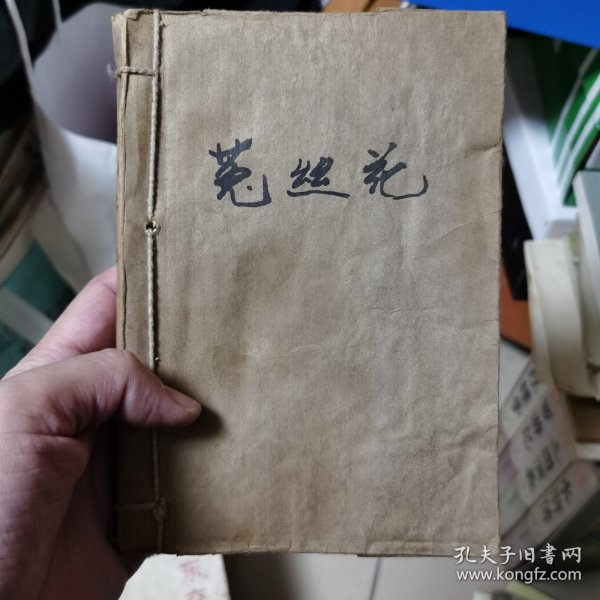 菟丝花
孔夫子旧书网
www.kongfz.com